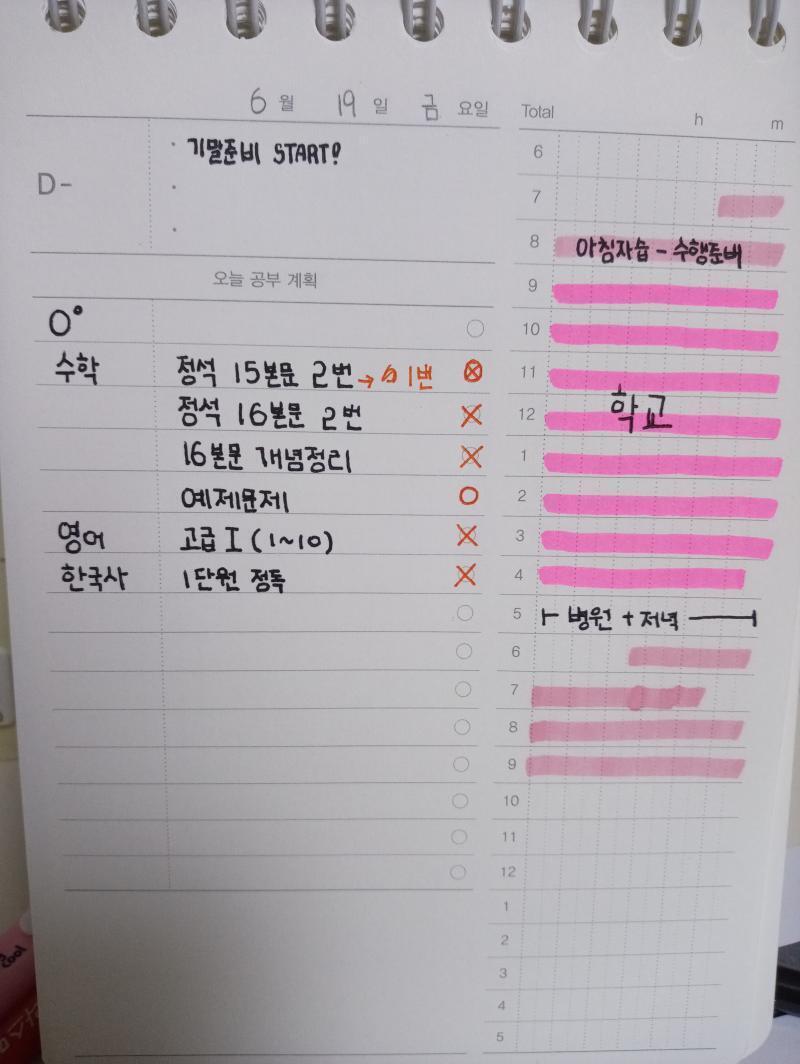 6 월 19 일 금 요일
D-
기말준비 START!
오늘 공부 계획
수학 정석 15본문 2번 → 1번
정석 16본문 2번
16본문 개념정리
예제문제
영어 고급 I (1~10)
한국사 1단원 정독
Total h m
6
7
8 아침자습 - 수행준비
9
10
11
12 학교
1
2
3
4
5 병원 + 저녁
6
7
8
9
10
11
12
1
2
3
4
5
cool